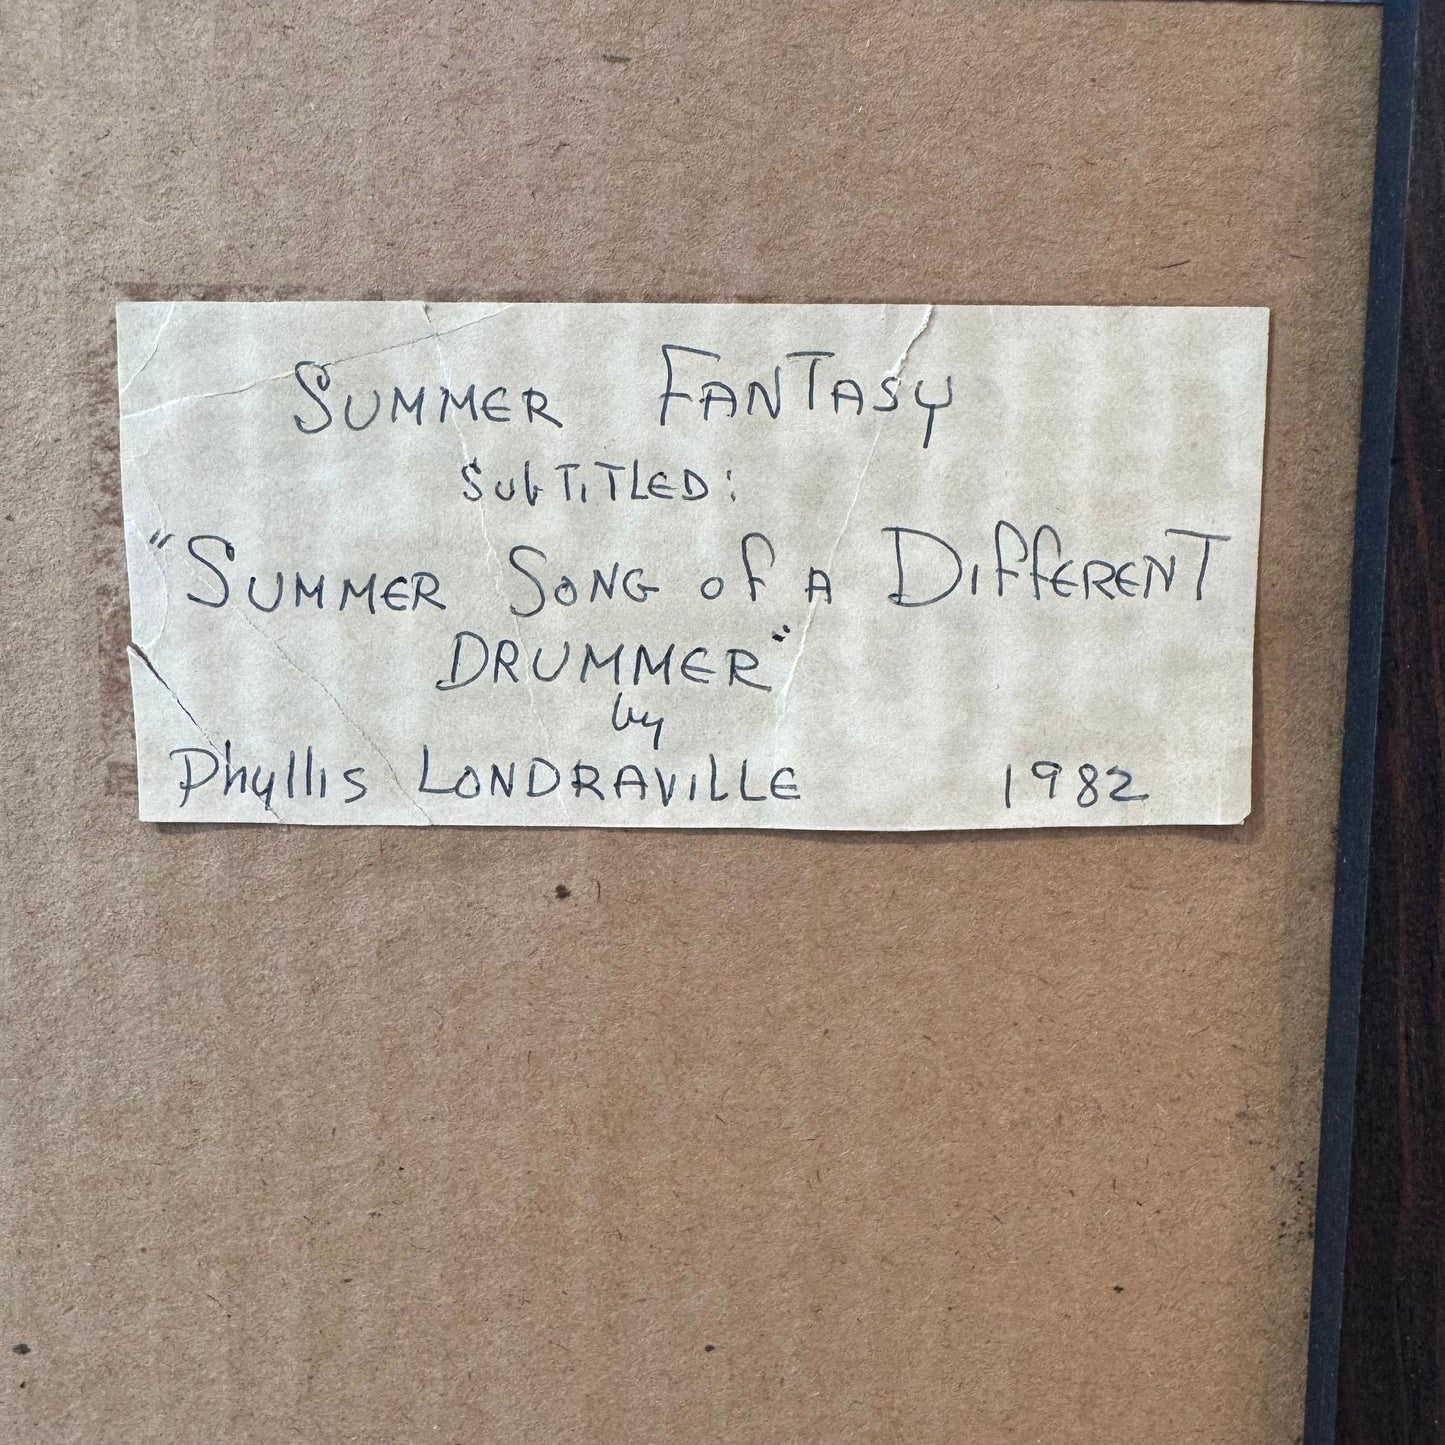 SUMMER FANTASY
SubTiTLED:
"SUMMER SONG of A DiffERENT
DRUMMER"
by
Phyllis LONDRAViLLE 1982